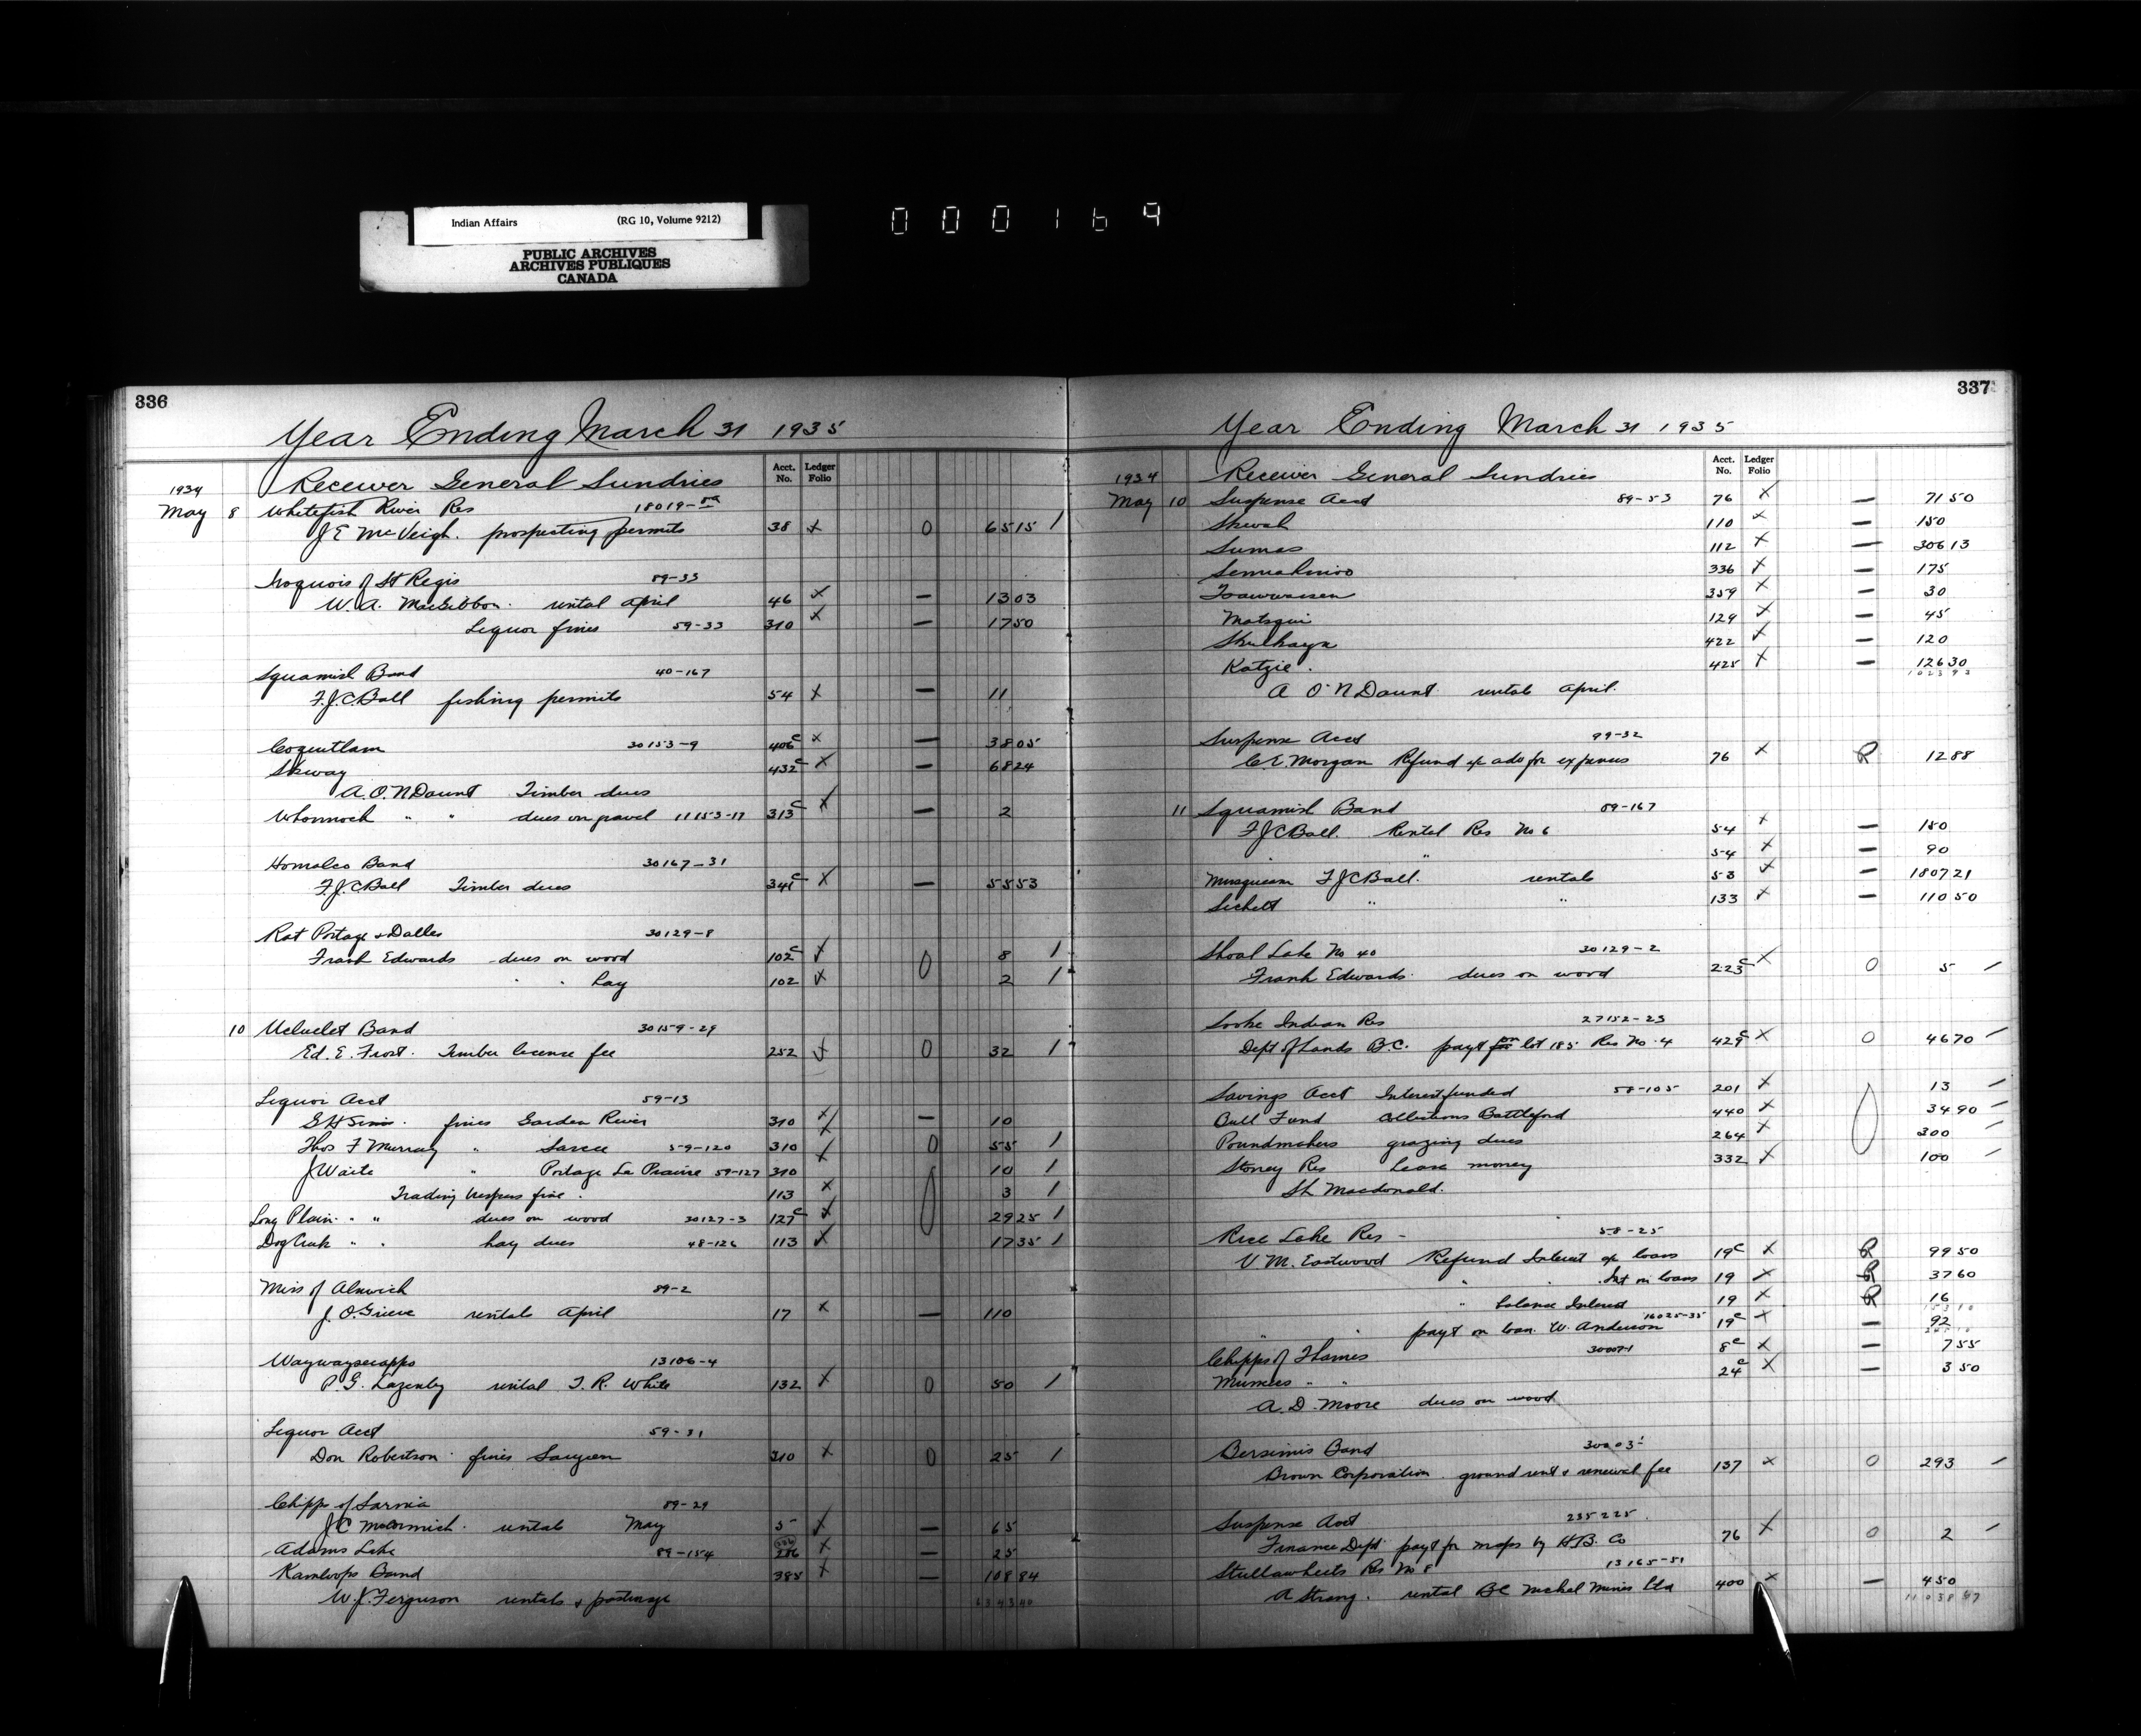 Indian Affairs (RG 10, Volume 9212)
PUBLIC ARCHIVES
ARCHIVES PUBLIQUES
CANADA
000169
336
Year Ending March 31 1935
Acct. No. Ledger Folio
1934 Receiver General Sundries
May 8 Whitefish River Res 18019-
J E McVeigh. prospecting permits 38 x 0 65 15 /
Iroquois of St Regis 89-33
W. A. MacGibbon. rental April 46 x — 13 03
Liquor fines 59-33 310 x — 17 50
Squamish Band 40-167
F.J.C. Ball fishing permits 54 x — 11
Coquitlam 30153-9 406c x — 38 05
Skway 432c x — 68 24
A.O.N Daunt Timber dues
Whonnock " " dues on gravel 11153-17 313c x — 2
Homalco Band 30167-31
F.J.C Ball Timber dues 341c x — 55 53
Rat Portage & Dalles 30129-8
Frank Edwards dues on wood 102c x 0 8 /
" " hay 102 x 2 /
10 Ucluelet Band 30159-29
Ed. E. Frost. Timber license fee 252 x 0 32 /
Liquor Acct 59-13
G H Sims. fines Garden River 310 x — 10
Thos F Murray " Sarcee 59-120 310 x 0 55 /
J Waite " Portage La Prairie 59-127 310 x 10 /
Trading trespass fine. 113 x 3 /
Long Plain. " " dues on wood 30127-3 127c x 29 25 /
Dog Creek " " hay dues 48-126 113 x 17 35 /
Miss of Alnwick 89-2
J. O. Grieve rentals April 17 x — 110
Waywayseecappo 13106-4
P. G. Lazenby rental T. R. White 132 x 0 50 /
Liquor Acct 59-31
Don Robertson. fines Saugeen 310 x 0 25 /
Chipps of Sarnia 89-29
J C McCormick. rentals May 5 x — 65
Adams Lake 89-154 x — 25
Kamloops Band 385 x — 108 84
W. J. Ferguson rentals & pasturage
337
Year Ending March 31 1935
Acct. No. Ledger Folio
1934 Receiver General Sundries
May 10 Suspense Acct 89-53 76 x — 71 50
Skwah 110 x — 1 50
Sumas 112 x — 306 13
Semiahmoo 336 x — 175
Tsawwassen 359 x — 30
Matsqui 129 x — 45
Skulkayn 422 x — 120
Katzie. 425 x — 126 30
A O'N Daunt rentals April.
Suspense Acct 99-32
C. E. Morgan Refund of adv for expenses 76 x R 12 88
11 Squamish Band 89-167
F J C Ball. Rental Res No 6 54 x — 150
" 54 x — 90
Musqueam F J C Ball. rentals 53 x — 1807 21
Sechelt " " 133 x — 110 50
Shoal Lake No 40 30129-2
Frank Edwards. dues on wood 223c x 0 5 /
Sooke Indian Res 27152-23
Dept of Lands B.C. payt for lot 185 Res No. 4 429c x 0 46 70 /
Savings Acct Interest funded 58-105 201 x 13 /
Bull Fund Collections Battleford 440 x 34 90 /
Poundmakers grazing dues 264 x 300 /
Stoney Res Lease money 332 x 100 /
S L Macdonald.
Rice Lake Res - 58-25
V. M. Eastwood Refund Interest of loans 19c x R 99 50
" " Int on loans 19 x R 37 60
" balance Interest 19 x R 16
" " payt on loan. W. Anderson 16025-35 19c x — 92
Chipps of Thames 30007-1 8c x — 7 55
Munsees " " 24c x — 3 50
A. D. Moore dues on wood
Bersimis Band
Brown Corporation. ground rent & renewal fee 137 x 0 293 /
Suspense Acct 235225
Finance Dept payt for maps by H.B. Co 76 x 0 2 /
Stullawheets Res No 8 13165-51
A Strang. rental BC Nickel Mines Ltd 400 x — 4 50